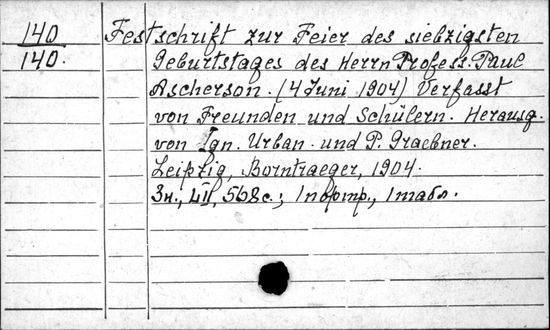 140
140.
Festschrift zur Feier des siebzigsten
Geburtstages des Herrn Profess. Paul
Ascherson. (4 Juni 1904) Verfasst
von Freunden und Schülern. Herausg.
von Ign. Urban und P. Graebner.
Leipzig, Borntraeger, 1904.
3н., LII, 568с.; 1 портр., 1 табл.